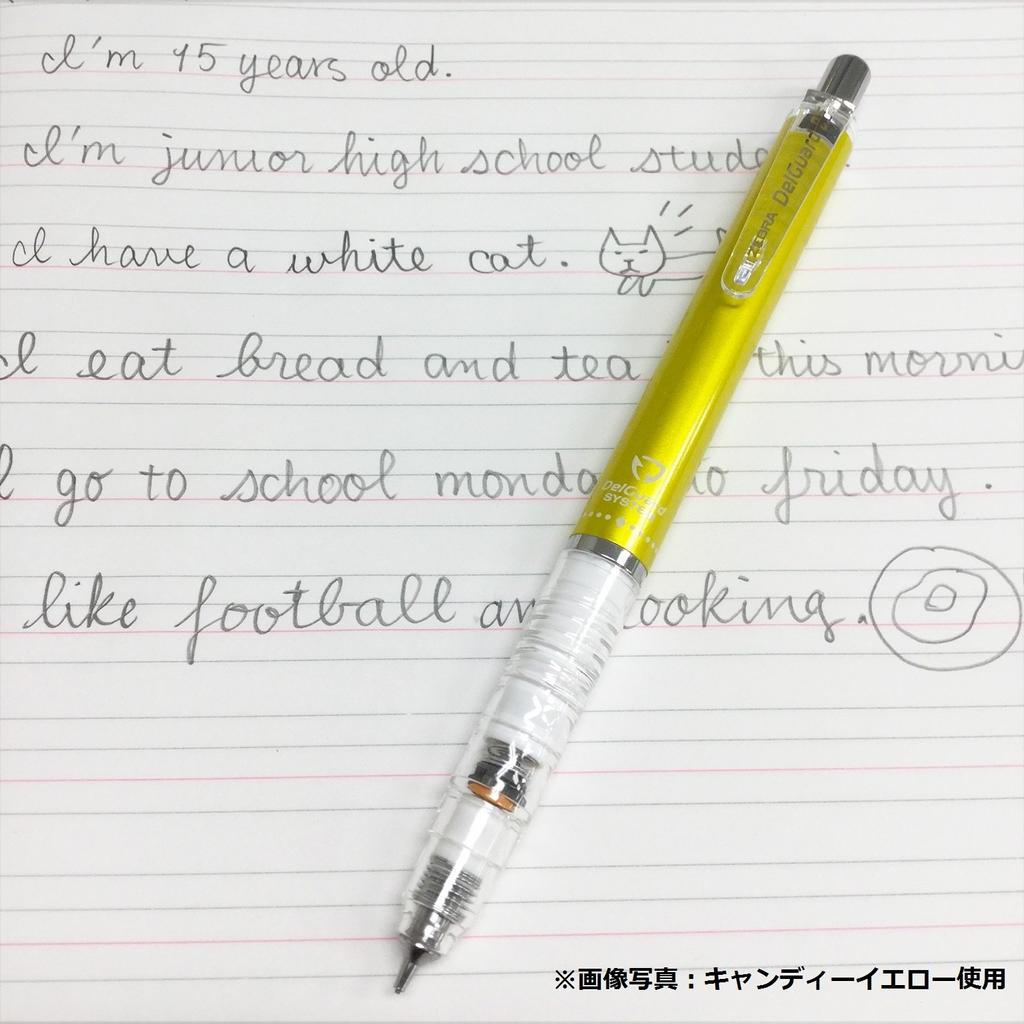 I'm 15 years old.
I'm junior high school stude
I have a white cat.
I eat bread and tea this morni
I go to school monda to friday.
like football an ooking.
ZEBRA DelGuard
DelGuard
SYSTEM
※画像写真：キャンディーイエロー使用